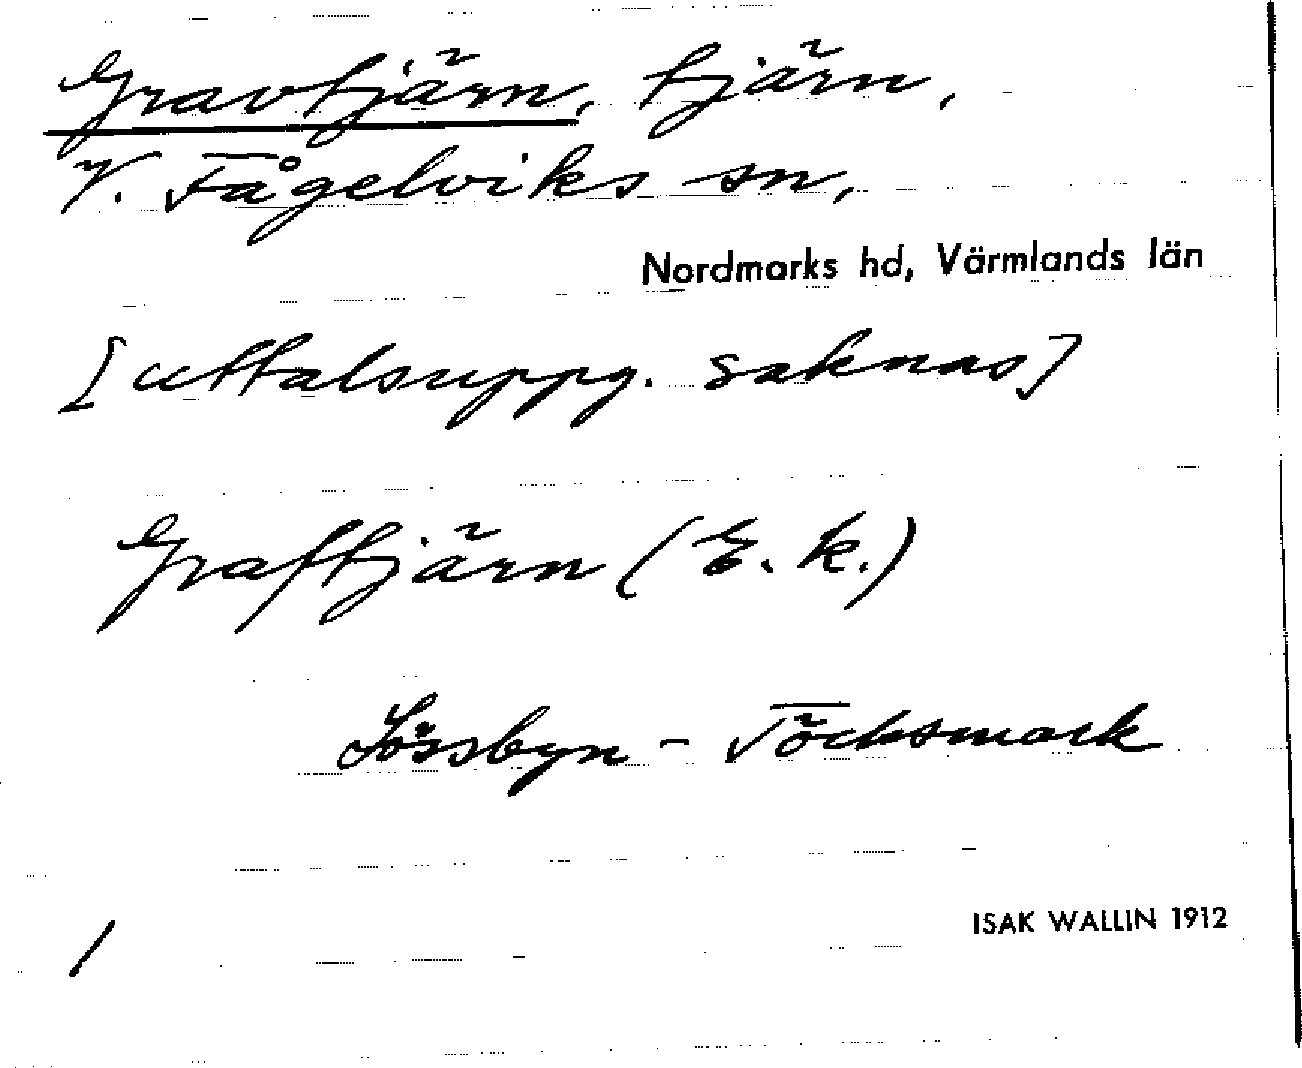 Gravtjärn, tjärn,
V. Fågelviks sn,
Nordmarks hd, Värmlands län
[uttalsuppg. saknas]
Graftjärn (E. k.)
Lössbyn - Töcksmark
ISAK WALLIN 1912
1